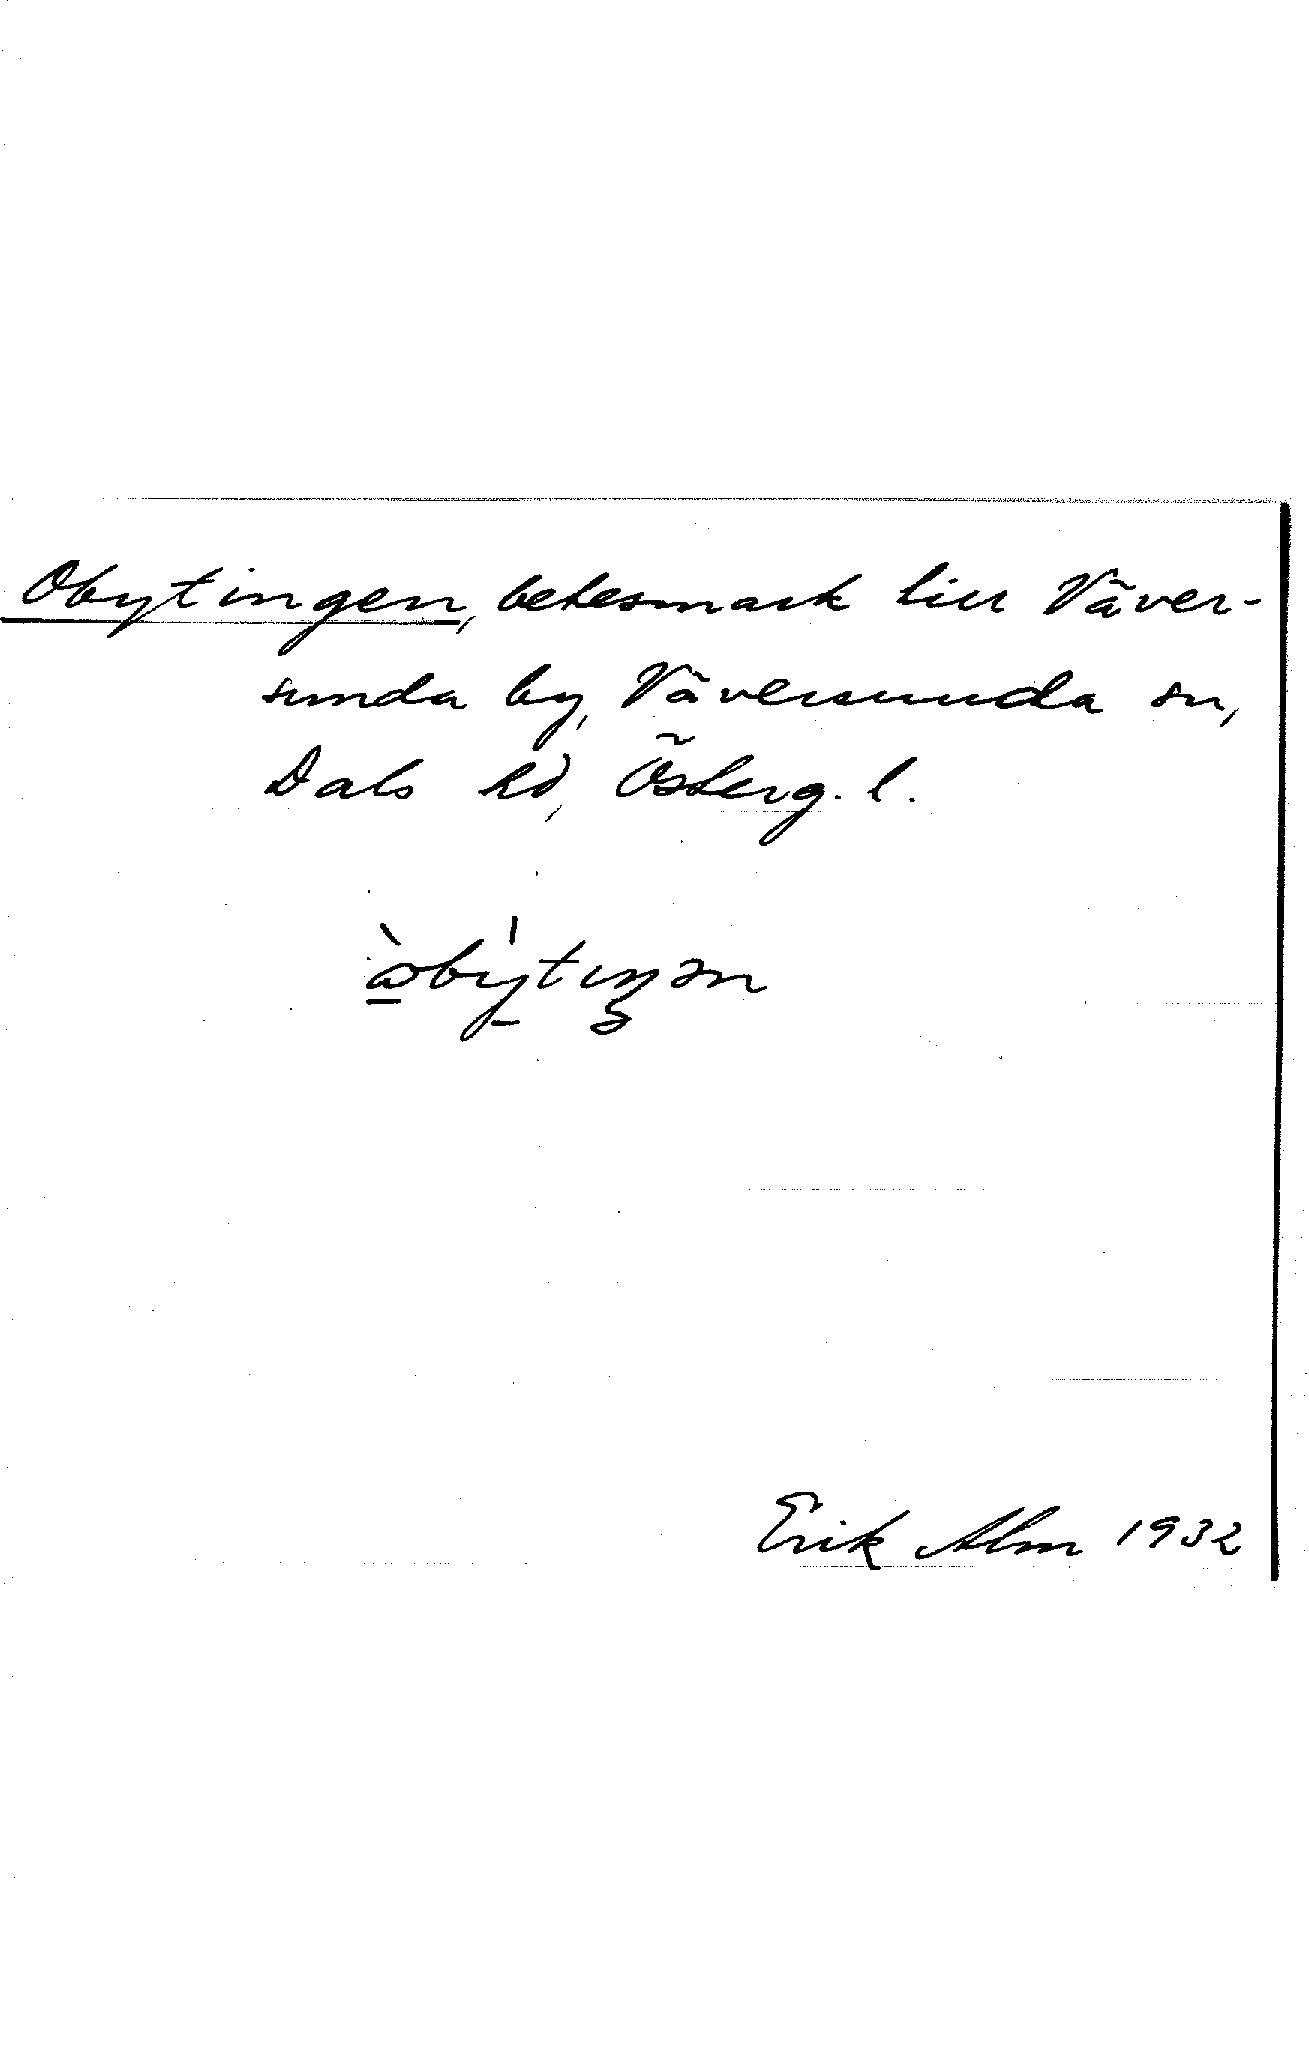 Obytingen, betesmark till Väver-
sunda by, Väversunda sn,
Dals hd, Österg. l.
Erik Alm 1932